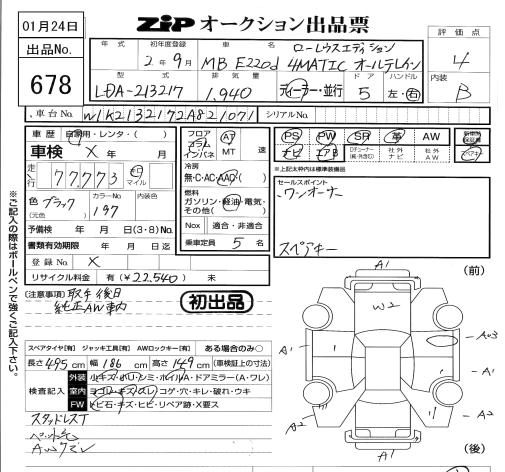 01月24日
出品No.
678
ZiP オークション出品票
年式
初年度登録
2年9月
車名
ローレウスエディション
MB E220d 4MATIC オールテレイン
評価点
4
内装
B
型式
LDA-213217
排気量
1,940
ディーラー・並行
ドア
5
ハンドル
左・右
車台No.
W1K2132172A821071
シリアルNo.
車歴
自家用・レンタ・( )
車検 X 年 月
走行
77,773
キロ
マイル
色
(元色)
ブラック
カラーNo.
197
内装色
予備検 年 月 日(3・8)No.
書類有効期限 年 月 日迄
登録No.
X
リサイクル料金 有(¥22,540) 未
フロア
コラム
インパネ
AT
MT
速
冷房
無・C・AC・AAC
燃料
ガソリン・軽油・電気・
その他( )
Nox 適合・非適合
乗車定員 5 名
PS
PW
SR
革
AW
ナビ
エアB
社外
ナビ
社外
AW
スペアキー
※上記太枠内は標準装備品
セールスポイント
ワンオーナー
スペアキー
※ご記入の際はボールペンで強くご記入下さい。
(注意事項)
取手後日
純正AW車内
初出品
スペアタイヤ[有] ジャッキ工具[有] AWロックキー[有] ある場合のみ○
長さ 495 cm 幅 186 cm 高さ 149 cm (車検証上の寸法)
検査記入
外装 小キズ・ボリ・ヒミ・ホイルA・ドアミラー(A・ワレ)
室内 ヨゴレ・キズ・スレ・コゲ・穴・キレ・破れ・ウキ
FW トビ石・キズ・ヒビ・リペア跡・X要ス
スタッドレスT
(前)
A1
W2
A1
A03
A1
A2
A2
A1
(後)